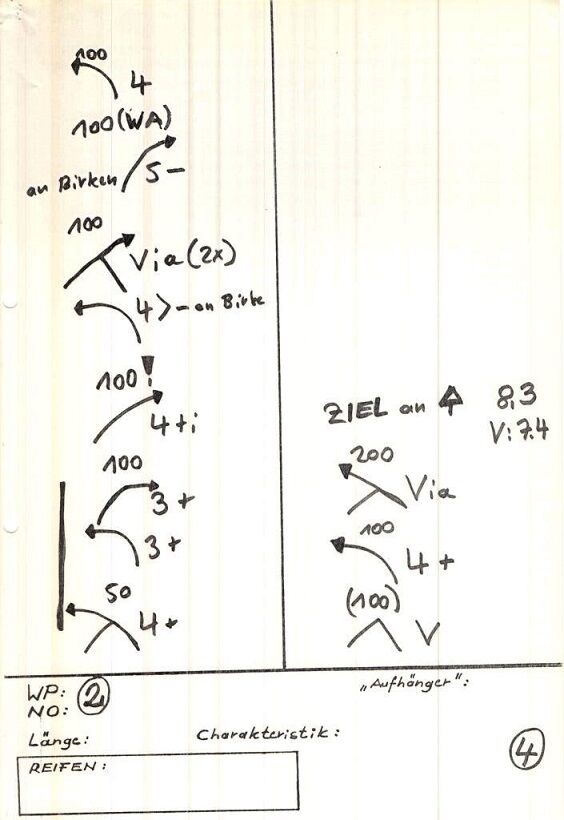 100
4
100 (WA)
an Birken 5 -
100
Via (2x)
4 > - an Birke
100 !
4+i
100
3 +
3 +
50
4 +
ZIEL an 8,3
V: 7.4
200
Via
100
4 +
(100)
V
WP: 2
NO:
Länge:
Charakteristik:
„Aufhänger":
4
REIFEN: